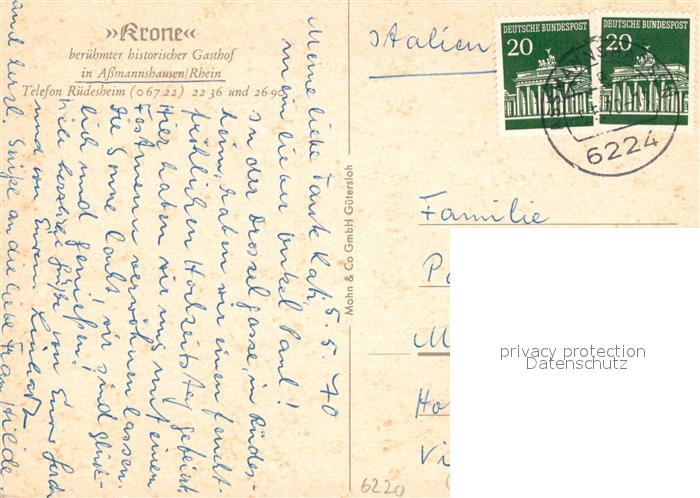 »Krone«
berühmter historischer Gasthof
in Aßmannshausen/Rhein
Telefon Rüdesheim (0 67 22) 22 36 und 26 90
5. 5. 70
Meine liebe Tante Käti,
mein lieber Onkel Paul!
In der Drosselgasse, in Rüdes-
heim, haben wir einen feucht-
fröhlichen Hochzeitstag gefeiert.
Hier haben wir uns mit einem
Festmenü verwöhnen lassen.
Die Sonne lacht, wir sind glück-
lich und genießen.
Viele herzliche Grüße von Eurer
und von Eurem
und Grüße an die liebe Frau
Mohn & Co GmbH Gütersloh
Italien
DEUTSCHE BUNDESPOST
20
DEUTSCHE BUNDESPOST
20
6224
Familie
P
M
Ho
Vi
privacy protection
Datenschutz
6220